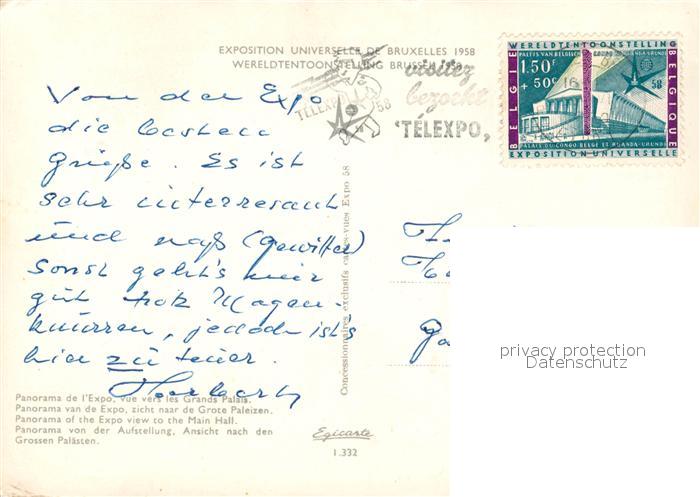 EXPOSITION UNIVERSELLE DE BRUXELLES 1958
WERELDTENTOONSTELLING BRUSSEL 1958
TELEXPO 58
visitez
bezoekt
'TÉLEXPO,
WERELDTENTOONSTELLING
BELGIE
BELGIQUE
1.50F
+ 50c
58
PALAIS DU CONGO BELGE ET RUANDA-URUNDI
EXPOSITION UNIVERSELLE
Von der Expo
die besten
Grüße. Es ist
sehr interresant
und naß (Gewitter)
sonst geht's mir
gut trotz Magen-
knurren, jedoch ist's
hier zu teuer.
Concessionnaires exclusifs cartes-vues Expo 58
privacy protection
Datenschutz
Panorama de l'Expo, vue vers les Grands Palais.
Panorama van de Expo, zicht naar de Grote Paleizen.
Panorama of the Expo view to the Main Hall.
Panorama von der Aufstellung, Ansicht nach den
Grossen Palästen.
Egicarte
1.332